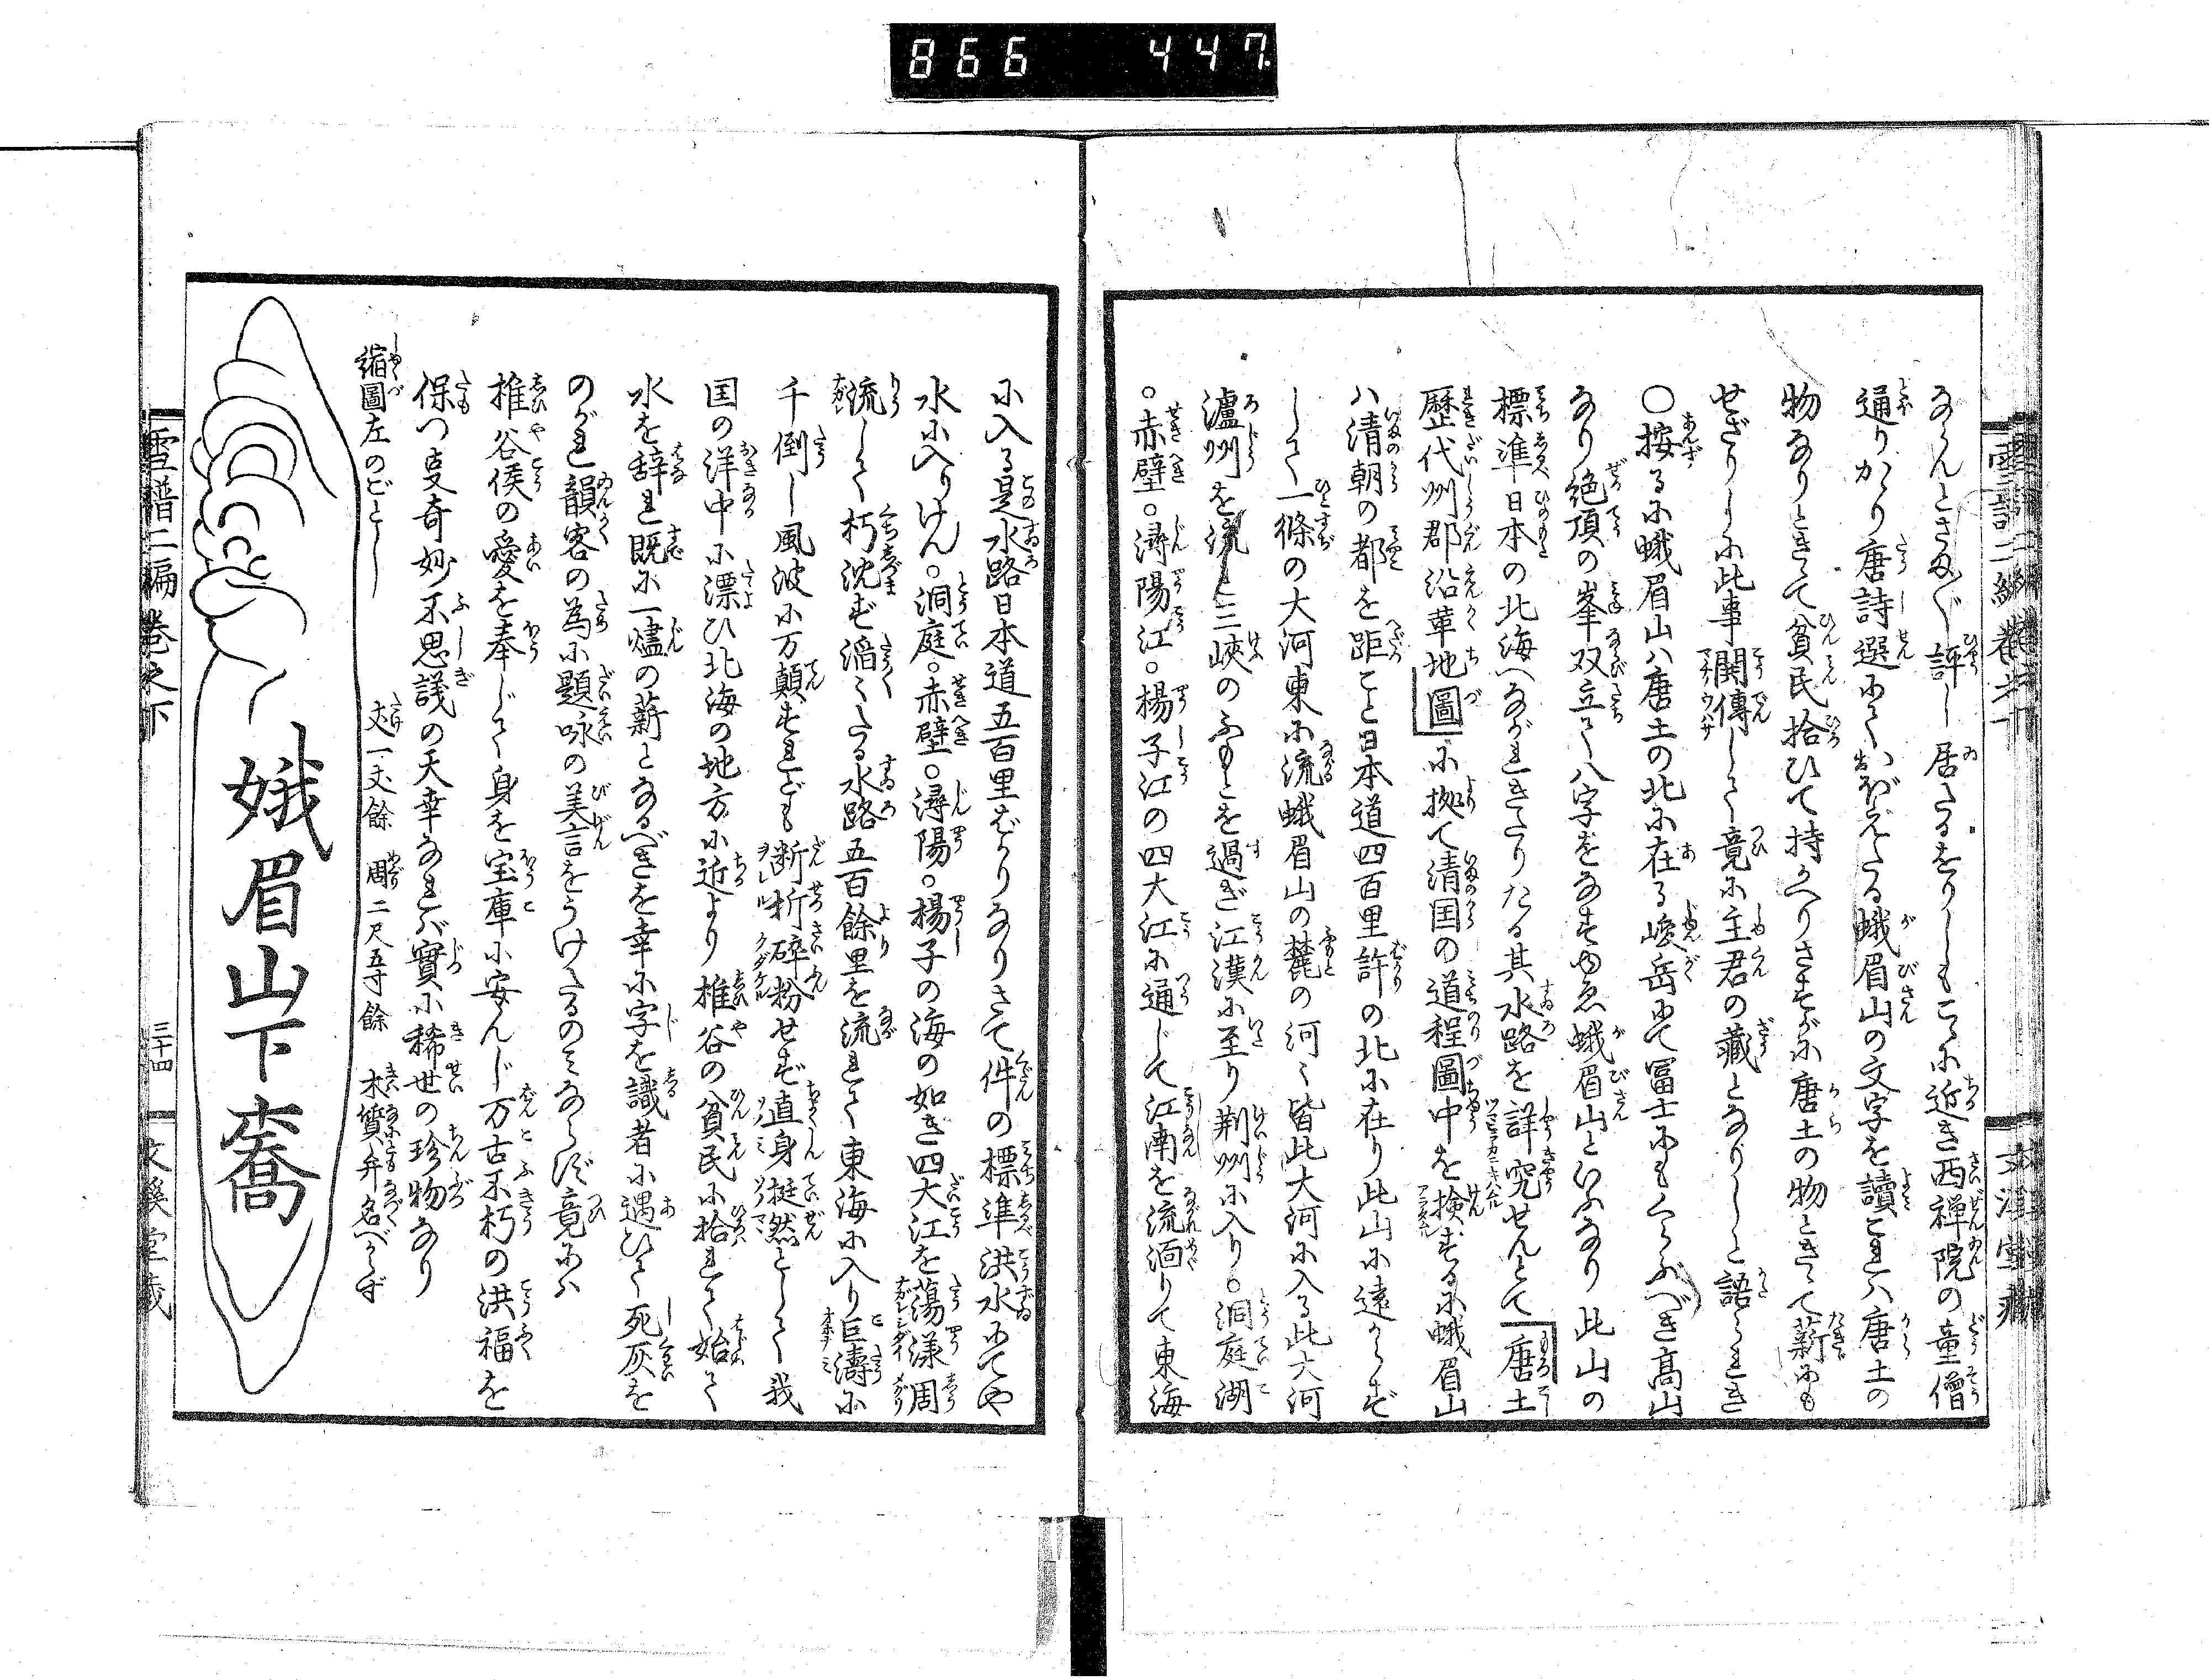 866 447.
なんとさま〴〵評し居たるをりしもこゝに近き西禅院の童僧
通りかゝり唐詩選にておぼえたる蛾眉山の文字を讀これハ唐土の
物なりときゝて貧民拾ひて持かへりさすがに唐土の物ときゝて薪にも
せざりしに此事閧傳して竟に主君の藏となりしと語られき
〇按るに蛾眉山ハ唐土の北に在る峻岳にて冨士にもくらぶべき高山
なり絶頂の峯双立て八字をなすゆゑ蛾眉山といふなり此山の
標準日本の北海へながれきたりたる其水路を詳究せんとて唐土
歴代州郡沿革地圖に拠て清国の道程圖中を検するに蛾眉山
ハ清朝の都を距こと日本道四百里許の北に在り此山に遠からず
して一條の大河東に流蛾眉山の麓の河々皆此大河に入る此大河
瀘州を流れ三峽のふもとを過ぎ江漢に至り荆州に入り。洞庭湖
。赤壁。潯陽江。楊子江の四大江に通じて江南を流洄りて東海
に入る是水路日本道五百里ばかりなりさて件の標準洪水にてや
水に入りけん。洞庭。赤壁。潯陽。楊子の海の如き四大江を蕩漾周
流して朽沈ず滔々たる水路五百餘里を流れて東海に入り巨濤に
千倒し風波に万顛すれども断折碎粉せず直身挺然として我
国の洋中に漂ひ北海の地方に近より椎谷の貧民に拾れて始て
水を辞れ既に一燼の薪となるべきを幸に字を識者に遇ひて死灰を
のがれ韻客の為に題咏の美言をうけたるのみならず竟にハ
椎谷侯の愛を奉じて身を宝庫に安んじ万古不朽の洪福を
保つ夏奇妙不思議の天幸なれバ實に稀世の珍物なり
縮圖左のごとし
丈一丈餘 周二尺五寸餘 木質弁名べからず
娥眉山下喬
雪譜二編巻之下 三十四 文溪堂藏